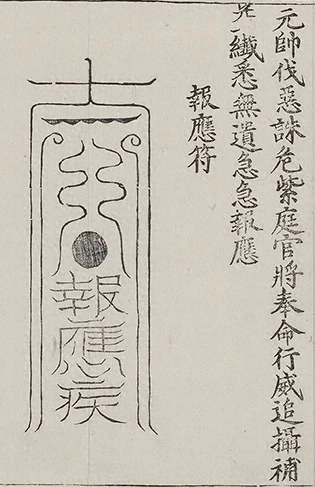 元帥伐惡誅危紫庭官將奉命行威追攝補
纖悉無遺急急報應
報應符
報應疾